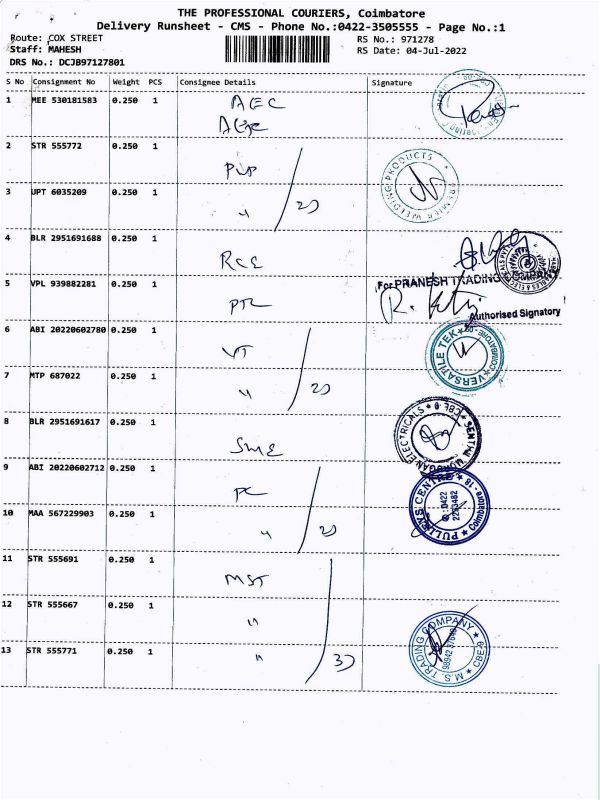 THE PROFESSIONAL COURIERS, Coimbatore
Delivery Runsheet - CMS - Phone No.:0422-3505555 - Page No.:1
Route: COX STREET
RS No.: 971278
Staff: MAHESH
RS Date: 04-Jul-2022
DRS No.: DCJB97127801
S No Consignment No Weight PCS Consignee Details Signature
1 MEE 530181583 0.250 1 AEC
2 STR 555772 0.250 1
PREMIER WELDING PRODUCTS
3 UPT 6035209 0.250 1 " 2)
4 BLR 2951691688 0.250 1 RCE
5 VPL 939882281 0.250 1 PTC
For PRANESH TRADING COMPANY
Authorised Signatory
6 ABI 20220602780 0.250 1 VT
VERSATILE TEK COIMBATORE
7 MTP 687022 0.250 1 " 2)
8 BLR 2951691617 0.250 1 SME
SENTHIL MURUGAN ELECTRICALS CBE.9
9 ABI 20220602712 0.250 1 PC
PULLEYS CENTRE Coimbatore - 18
✆:0422
2233482
10 MAA 567229903 0.250 1 " 2)
11 STR 555691 0.250 1 MST
12 STR 555667 0.250 1 "
13 STR 555771 0.250 1 " 3)
M.S. TRADING COMPANY CBE-9